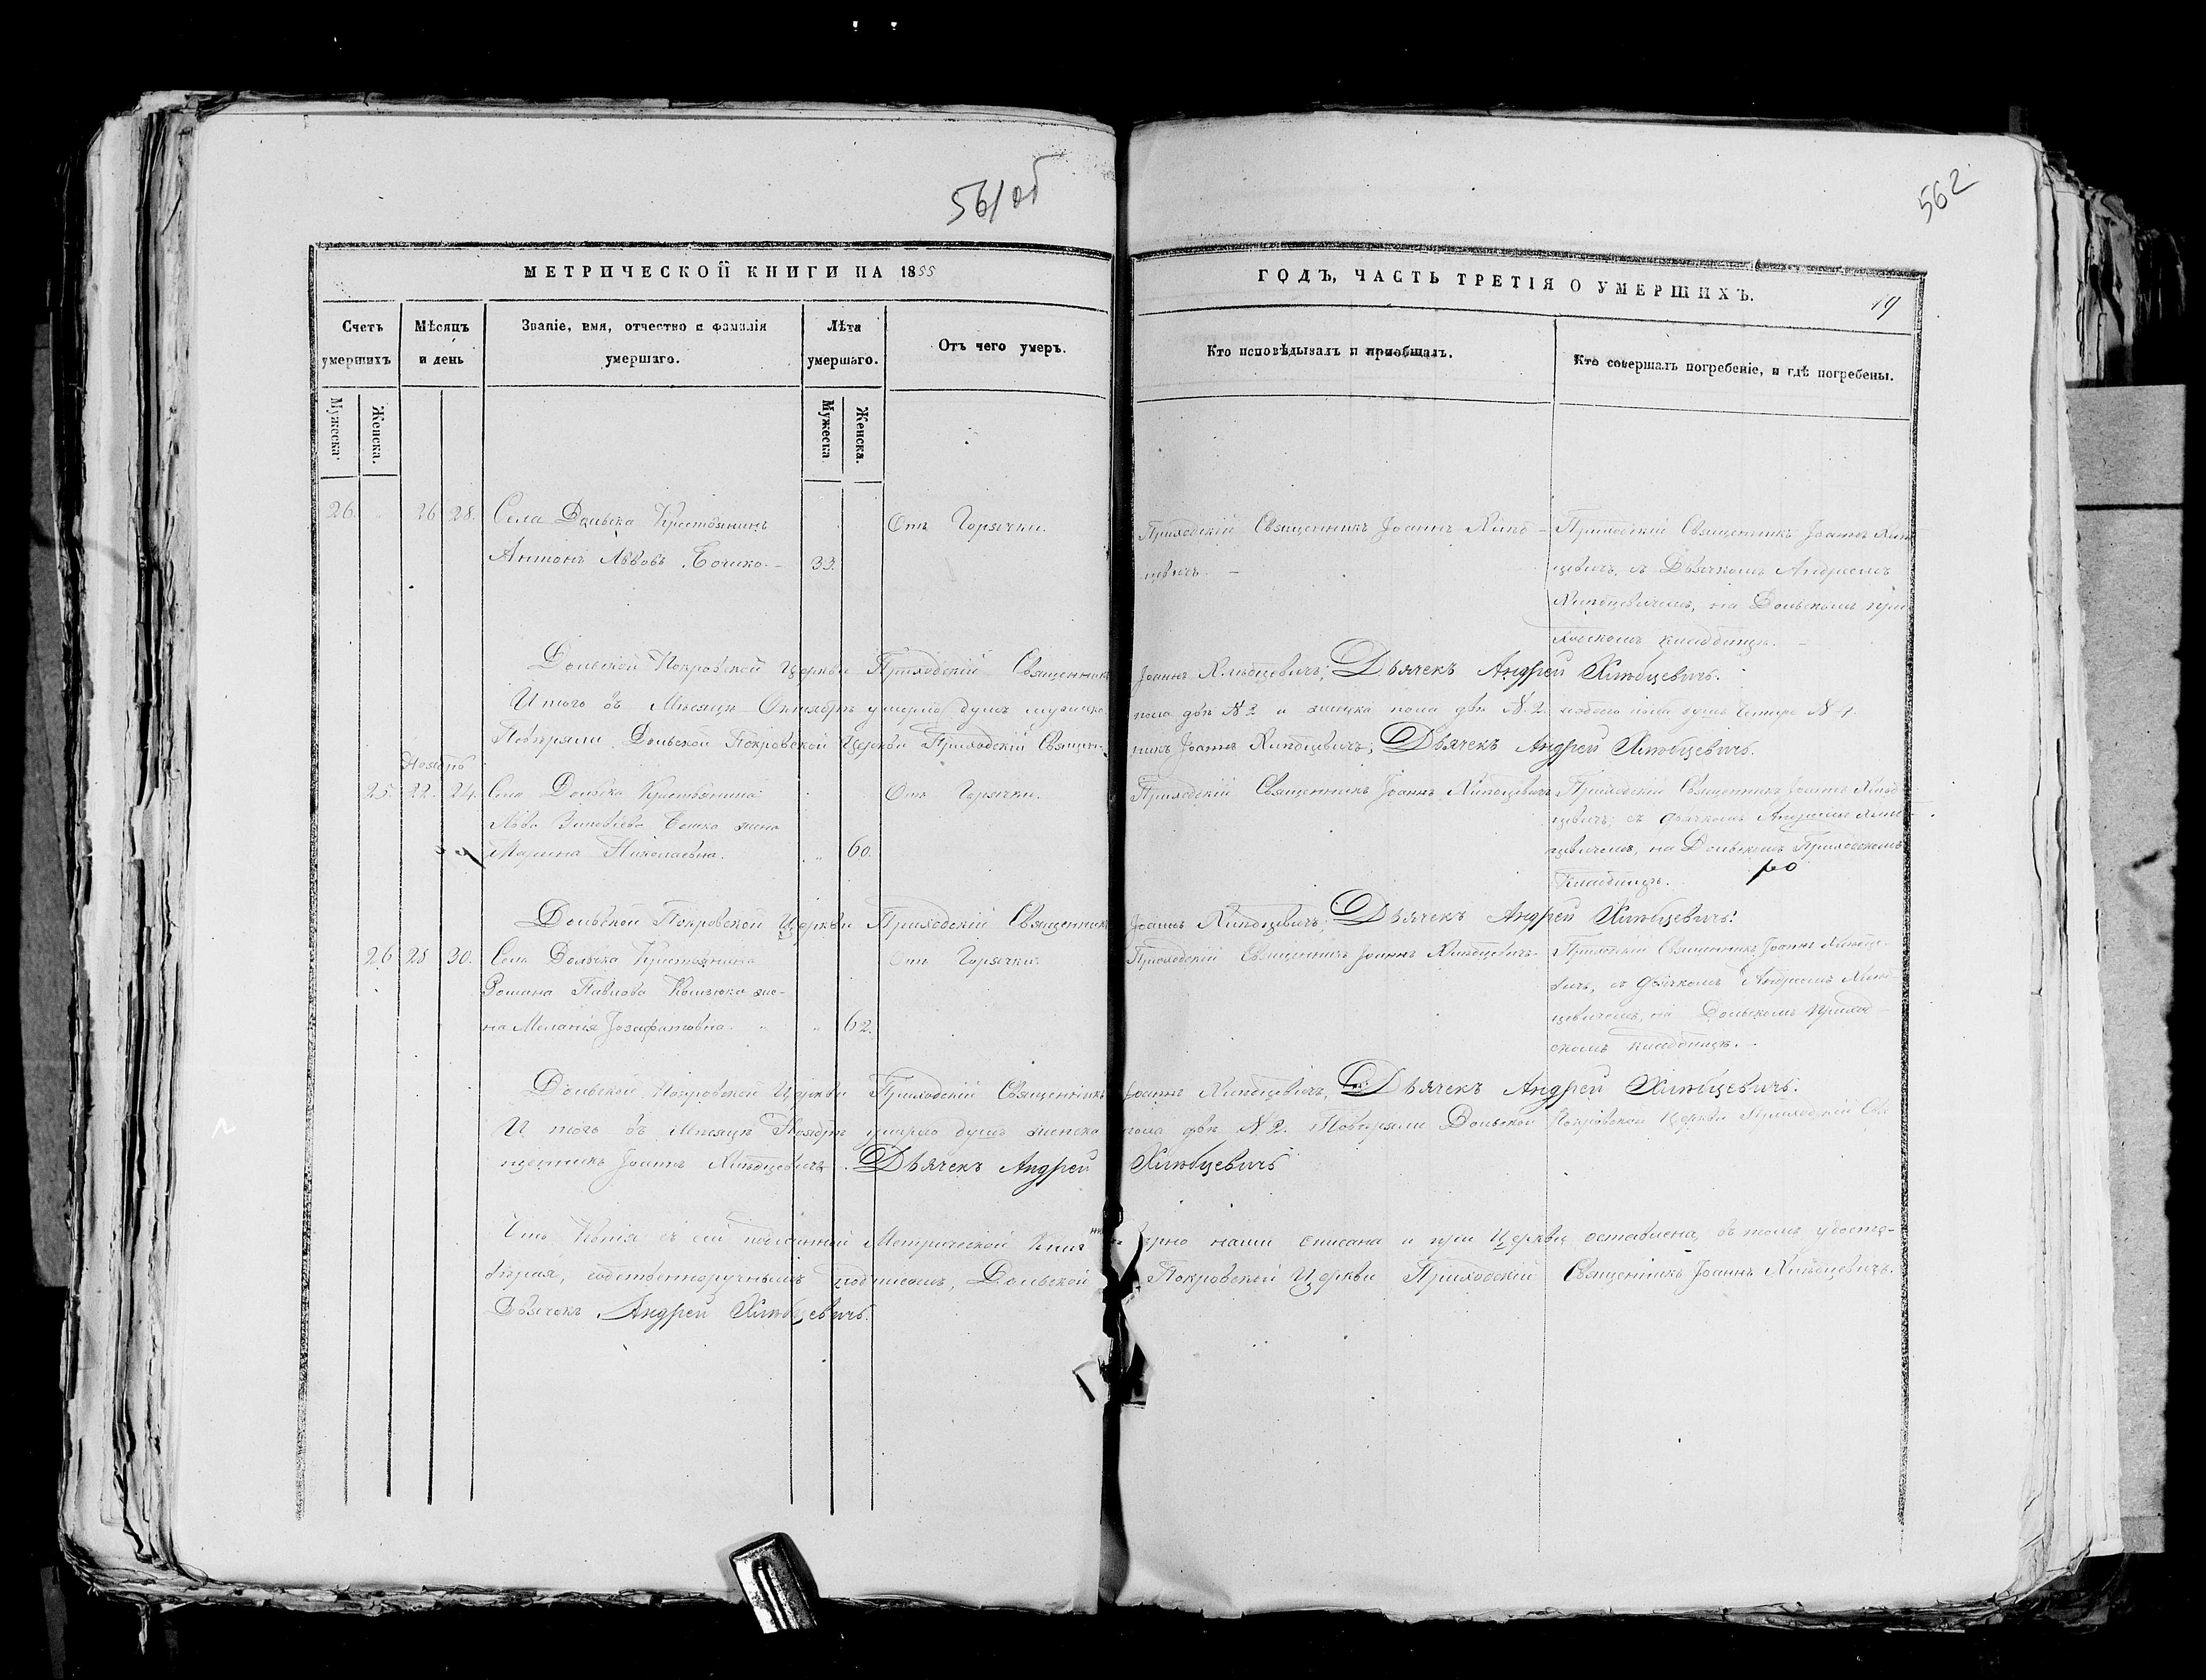 561об
562
МЕТРИЧЕСКОЙ КНИГИ НА 1855
ГОДЪ, ЧАСТЬ ТРЕТІЯ О УМЕРШИХЪ.
19
Счетъ умершихъ
Мѣсяцъ и день
Званіе, имя, отчество и фамилія умершаго.
Лѣта умершаго.
Отъ чего умеръ.
Кто исповѣдывалъ и пріобщалъ.
Кто совершалъ погребеніе, и гдѣ погребены.
Мужеска.
Женска.
Мужеска
Женска.
26. 26 28. Села Дольска Крестьянинъ
Антонъ Львовъ 33.
Отъ Горячки.
Приходскій Священникъ Іоаннъ Хлѣб-
цевичъ. –
Приходскій Священникъ Іоаннъ Хлѣб
цевичъ, съ Дьячкомъ Андреемъ
Хлѣбцевичемъ, на Дольскомъ при
ходскомъ кладбищѣ. –
Дольской Покровской Церкви Приходскій Священникъ Іоаннъ Хлѣбцевичъ; Дьячекъ Андрей Хлѣбцевичъ.
Итого въ Мѣсяцѣ Октябрѣ умерло душъ мужеска пола двѣ № 2 и женска пола двѣ № 2. обоего пола душъ Четыре № 4.
Повѣряли Дольской Покровской Церкви Приходскій Священникъ Іоаннъ Хлѣбцевичъ; Дьячекъ Андрей Хлѣбцевичъ.
Ноябрь
25. 22. 24. Села Дольска Крестьянина
Льва жена
Марина Николаевна. 60.
Отъ Горячки.
Приходскій Священникъ Іоаннъ Хлѣбцевичъ
Приходскій Священникъ Іоаннъ Хлѣб
цевичъ; съ дьячкомъ Андреемъ Хлѣб-
цевичемъ, на Дольскомъ Приходскомъ
Кладбищѣ.
Дольской Покровской Церкви Приходскій Священникъ Іоаннъ Хлѣбцевичъ; Дьячекъ Андрей Хлѣбцевичъ.
26 28 30. Села Дольска Крестьянина
Романа Павлова же-
на Меланія Іозафатовна. 62.
Отъ Горячки.
Приходскій Священникъ Іоаннъ Хлѣбцевичъ.
Приходскій Священникъ Іоаннъ Хлѣбце-
вичъ, съ дьячкомъ Андреемъ Хлѣб
цевичемъ, на Дольскомъ приход
скомъ кладбищѣ. –
Дольской Покровской Церкви Приходскій Священникъ Іоаннъ Хлѣбцевичъ, Дьячекъ Андрей Хлѣбцевичъ.
Итого въ Мѣсяцѣ Ноябрѣ умерло душъ женска пола двѣ № 2. Повѣряли Дольской Покровской Церкви Приходскій Свя
щенникъ Іоаннъ Хлѣбцевичъ. Дьячекъ Андрей Хлѣбцевичъ
Что Копія съ сей подлинной Метрической Книги вѣрно нами списана и при Церкви оставлена, въ томъ удосто-
вѣряя, собственноручнымъ подписомъ, Дольской Покровской Церкви Приходскій Священникъ Іоаннъ Хлѣбцевичъ.
Дьячокъ Андрей Хлѣбцевичъ.